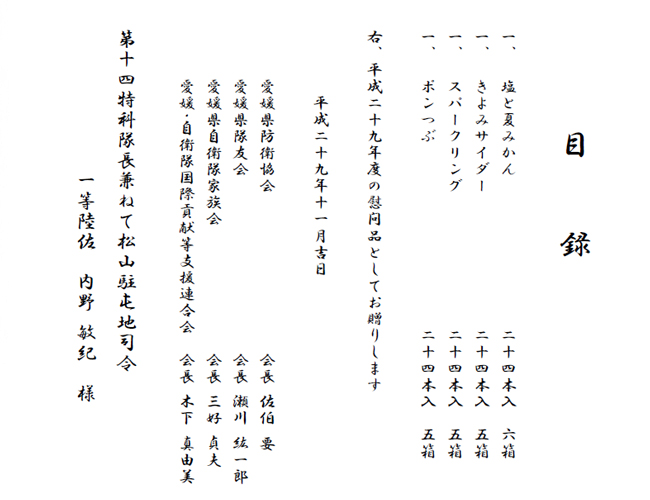 目録
一、塩と夏みかん 二十四本入 六箱
一、きよみサイダー 二十四本入 五箱
一、スパークリング 二十四本入 五箱
一、ポンつぶ 二十四本入 五箱
右、平成二十九年度の慰問品としてお贈りします
平成二十九年十一月吉日
愛媛県防衛協会 会長 佐伯 要
愛媛県隊友会 会長 瀬川 紘一郎
愛媛県自衛隊家族会 会長 三好 貞夫
愛媛・自衛隊国際貢献等支援連合会 会長 木下 真由美
第十四特科隊長兼ねて松山駐屯地司令
一等陸佐 内野 敏紀 様